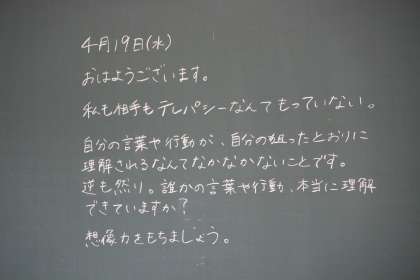 4月19日(水)
おはようございます。
私も相手もテレパシーなんてもっていない。
自分の言葉や行動が、自分の狙ったとおりに
理解されるなんてなかなかないことです。
逆も然り。誰かの言葉や行動、本当に理解
できていますか?
想像力をもちましょう。